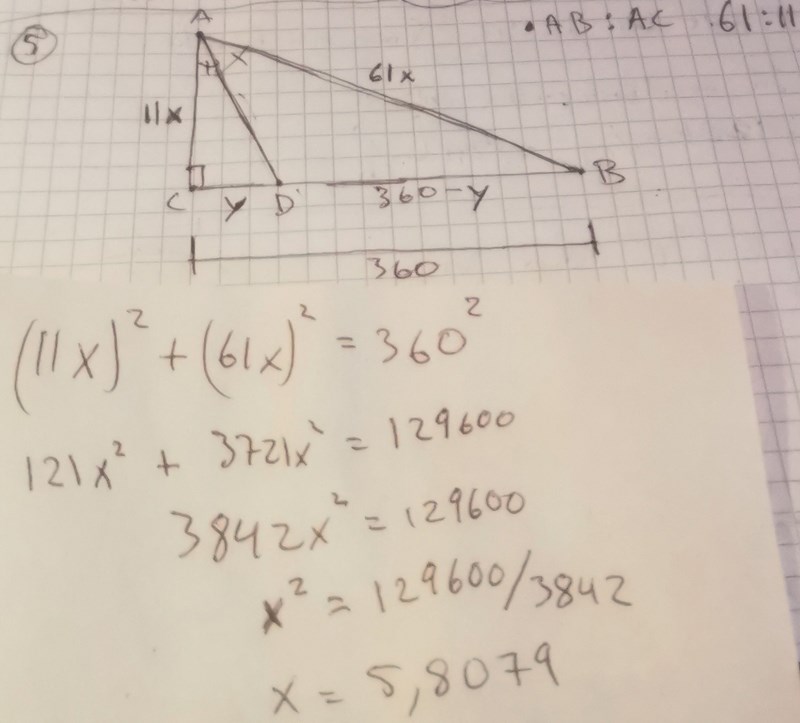 5
• AB : AC 61:11
A
x x
61x
11x
C y D 360-y B
360
(11x)² + (61x)² = 360²
121x² + 3721x² = 129600
3842x² = 129600
x² = 129600/3842
x = 5,8079